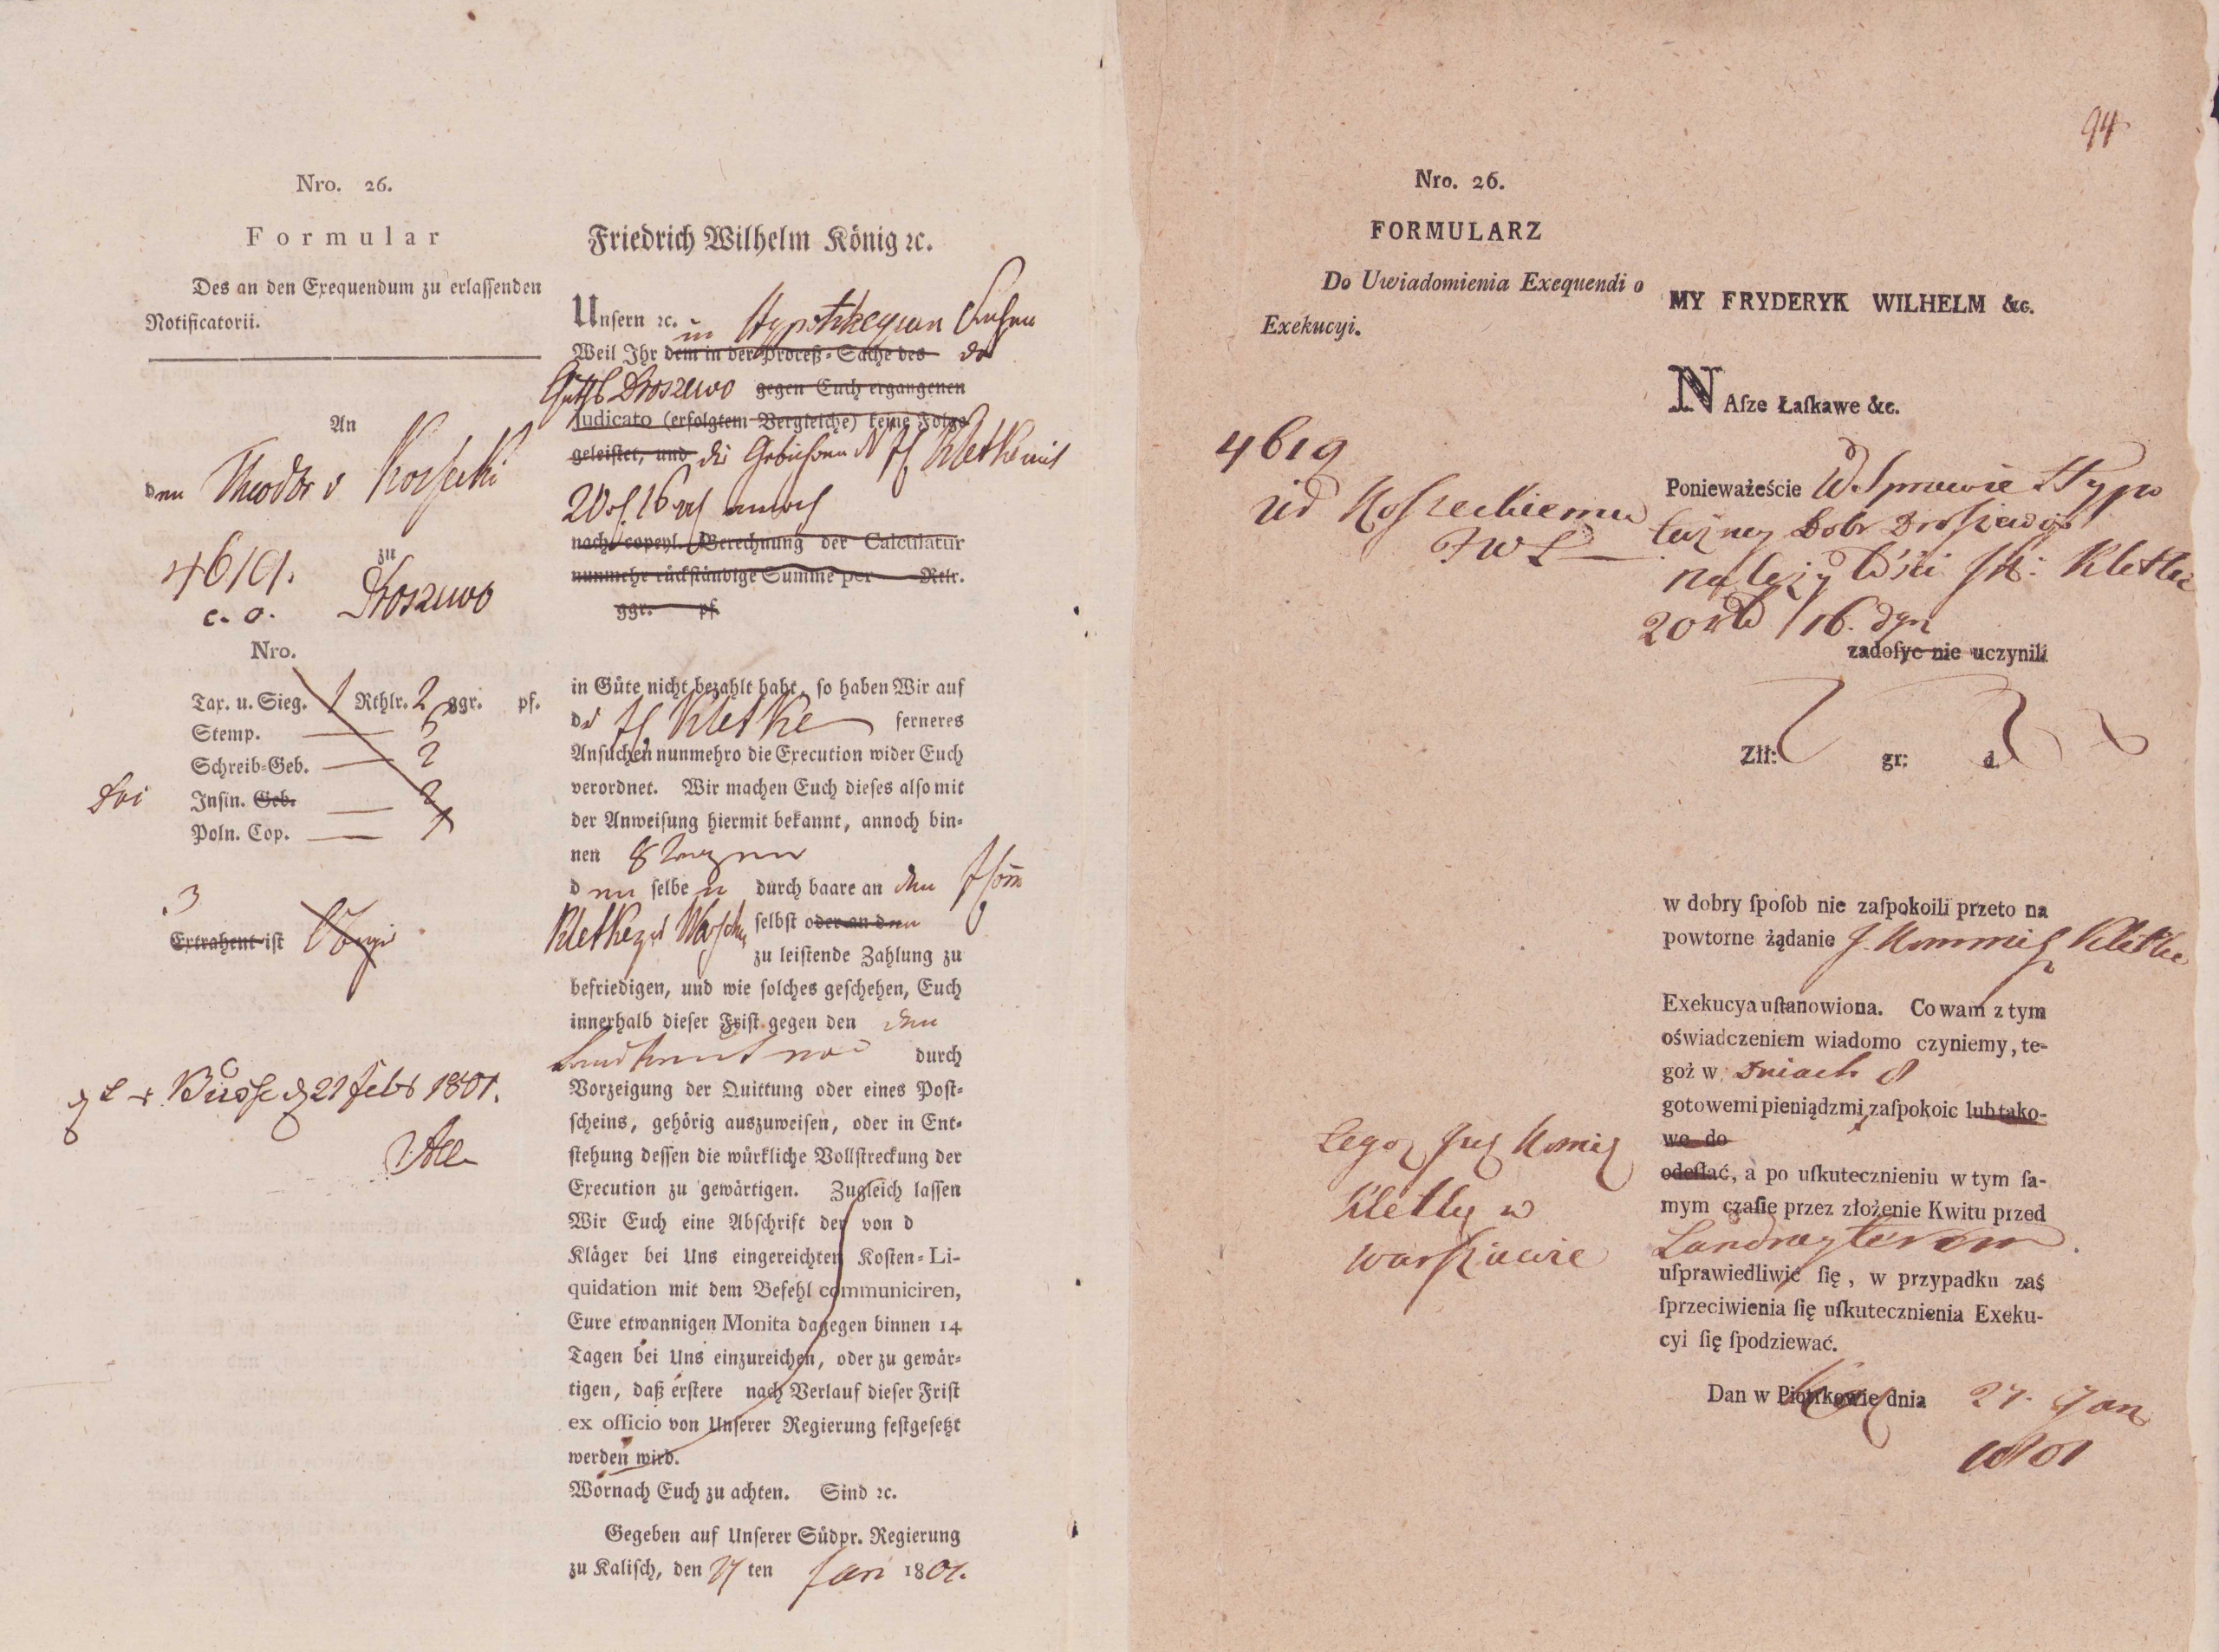 Nro. 26.
Formular
Des an den Exequendum zu erlassenden
Notificatorii.
An
den Theodor v
4619.
zu
Droszewo
c. a.
Nro.
Tax. u. Sieg. 1 Rthlr. 2 ggr. pf.
Stemp. 6
Schreib-Geb. 2
Insin. Geb. 2
Poln. Cop. 1
3
Extrahent ist
Busse d 21 Febr 1801.
Friedrich Wilhelm König ꝛc.
Unsern ꝛc. in Hypothequen Sachen
Weil Ihr dem in der Proceß-Sache des des
Guths Droszewo gegen Euch ergangenen
Judicato (erfolgtem Vergleiche) keine Folge
geleistet, und die Gebühren Kletke mit
20 16
nach copeyl. Berechnung der Calculatur
nunmehr rückständige Summe per Rtlr.
ggr. pf.
in Güte nicht bezahlt habt, so haben Wir auf
des Kletke ferneres
Ansuchen nunmehro die Execution wider Euch
verordnet. Wir machen Euch dieses also mit
der Anweisung hiermit bekannt, annoch bin-
nen 8 Tagen
denselben durch baare an den
Kletke zu selbst oder an den
zu leistende Zahlung zu
befriedigen, und wie solches geschehen, Euch
innerhalb dieser Frist gegen den den
durch
Vorzeigung der Quittung oder eines Post-
scheins, gehörig auszuweisen, oder in Ent-
stehung dessen die würkliche Vollstreckung der
Execution zu gewärtigen. Zugleich lassen
Wir Euch eine Abschrift der von d
Kläger bei Uns eingereichten Kosten-Li-
quidation mit dem Befehl communiciren,
Eure etwannigen Monita dagegen binnen 14
Tagen bei Uns einzureichen, oder zu gewär-
tigen, daß erstere nach Verlauf dieser Frist
ex officio von Unserer Regierung festgesetzt
werden wird.
Wornach Euch zu achten. Sind ꝛc.
Gegeben auf Unserer Südpr. Regierung
zu Kalisch, den 27 ten Jan 1801.
94
Nro. 26.
FORMULARZ
Do Uwiadomienia Exequendi o
Exekucyi.
4619
Ur Koszeckiemu
MY FRYDERYK WILHELM &c.
NAſze Łaſkawe &c.
Ponieważeście W Sprawie Hypo
teczney Dobr Droszewa
należytości Kletke
20 16. dgr
zadoſyc nie uczynili
Złł: gr: d.
w dobry ſpoſob nie zaſpokoili przeto na
powtorne żądanie J. Kommiss Kletke
Exekucya uſtanowiona. Co wam z tym
oświadczeniem wiadomo czyniemy, te-
goż w Dniach 8
gotowemi pieniądzmi zaſpokoic lub tako-
we do
odeſłać, a po uſkutecznieniu w tym ſa-
mym czaſie przez złożenie Kwitu przed
Landrayterem
uſprawiedliwić ſię, w przypadku zaś
ſprzeciwienia ſię uſkutecznienia Exeku-
cyi ſię ſpodziewać.
tegoz Jus Komis
Kletky w
Warszawie
Dan w Piotrkowie dnia 27. Jan
1801